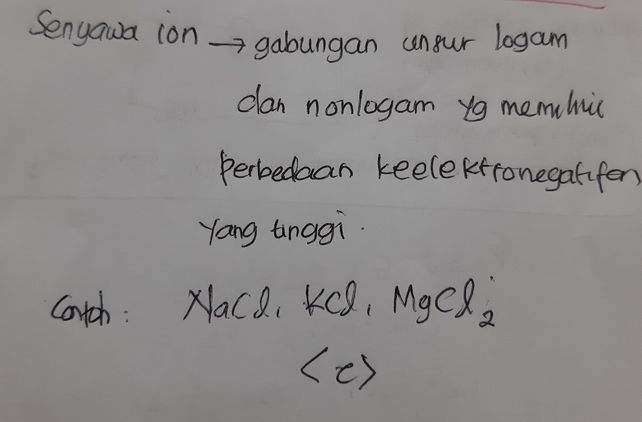 Senyawa ion → gabungan unsur logam
dan nonlogam yg memiliki
perbedaan keelektronegatifan
yang tinggi.
Contoh : NaCl, KCl, MgCl₂
<c>